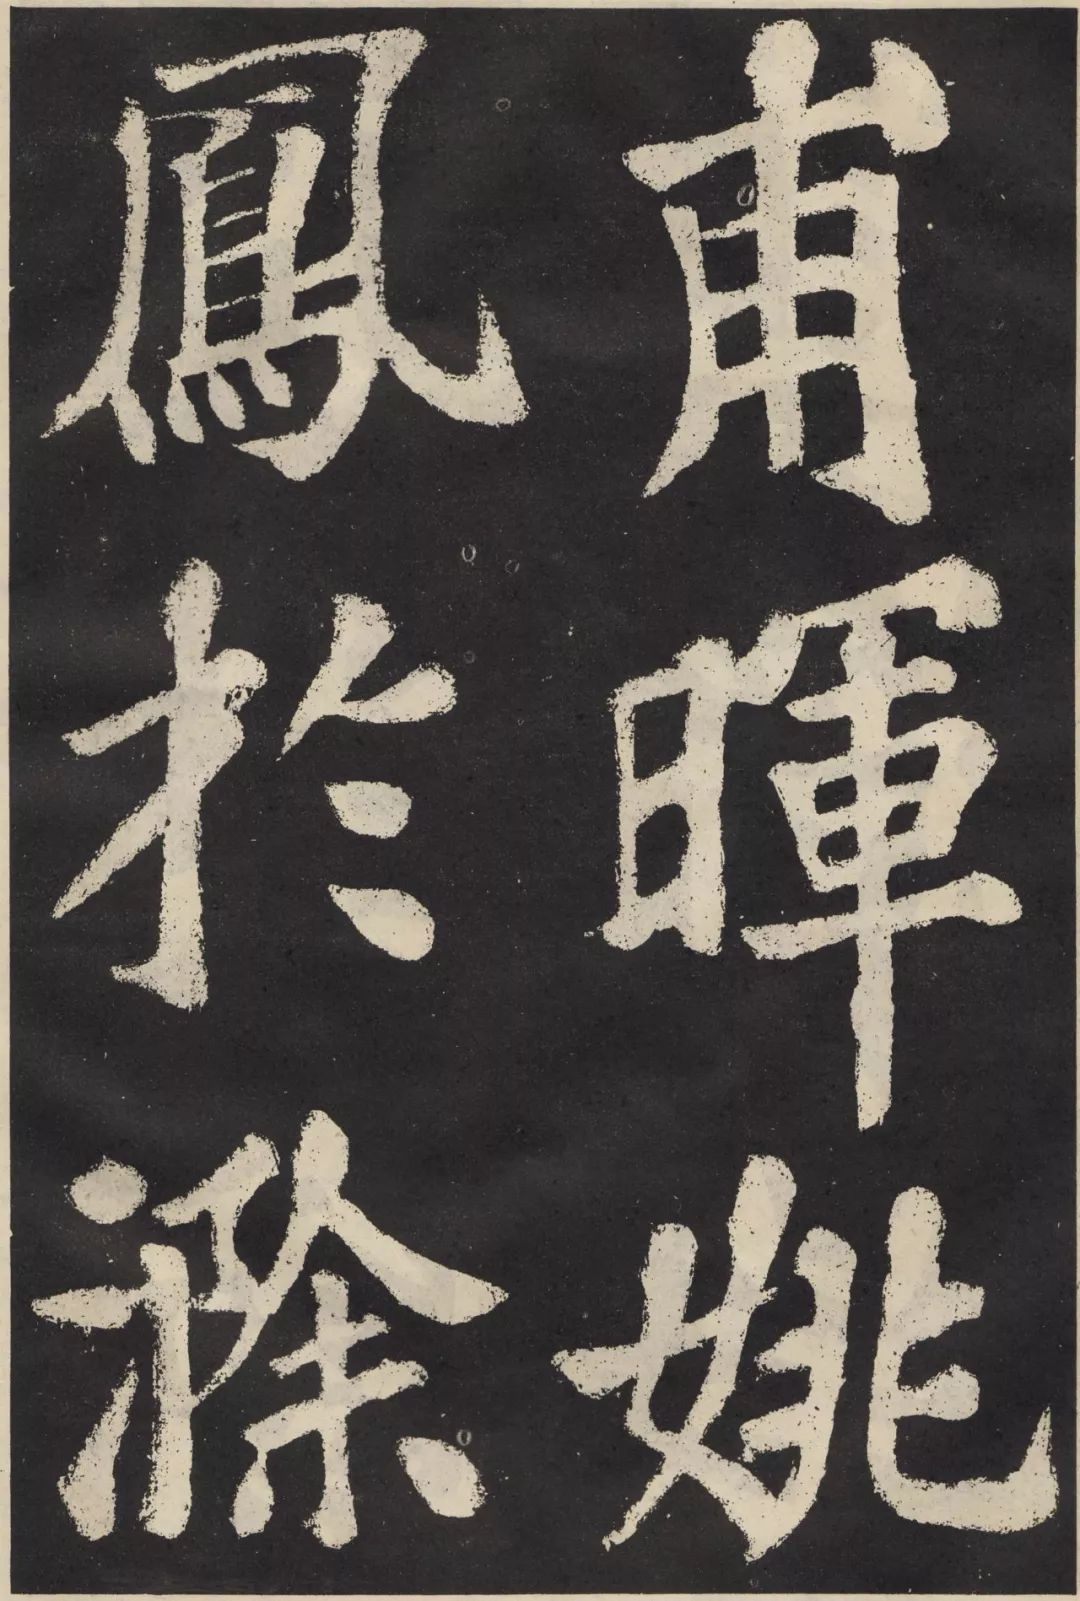 甫暉姚
鳳於滁